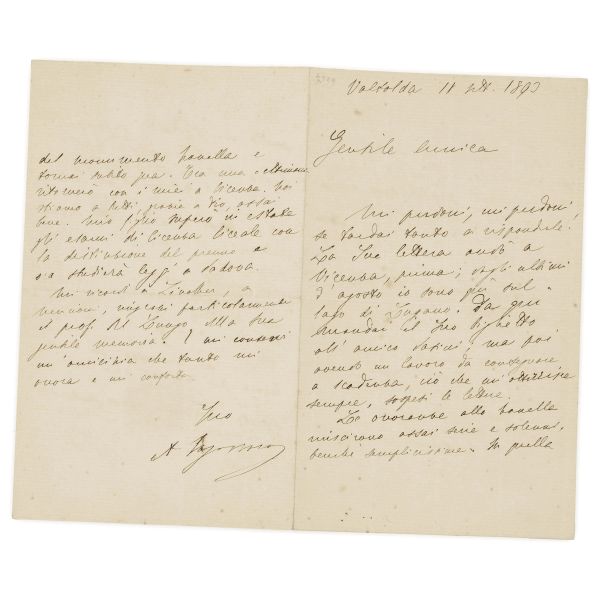 Valsolda 11 sett. 1893
Gentile amica
Mi perdoni, mi perdoni
se tardai tanto a rispondele.
La Sua lettera andò a
Vicenza, prima; dagli ultimi
d'agosto io sono qui sul
lago di Lugano. Da qui
mandai il Suo biglietto
all'amico ma poi
avendo un lavoro da consegnare
a scadenza, ciò che mi
sempre, sospesi le lettere.
Le onoranze allo Zanella
riuscirono assai serie e solenni,
benché semplicissime. In quella
del monumento Zanella e
tornai subito qua. Tra una settimana
ritornerò con i miei a Vicenza. Noi
stiamo tutti, grazie a Dio, assai
bene. Mio figlio superò in estate
gli esami di licenza liceale con
la distinzione del premio e
ora studierà leggi a Padova.
Mi ricordi a a
particolarmente
il prof. Del Lungo alla Sua
gentile memoria. E mi conservi
un'amicizia che tanto mi
onora e mi conforta.
Suo
A Fogazzaro